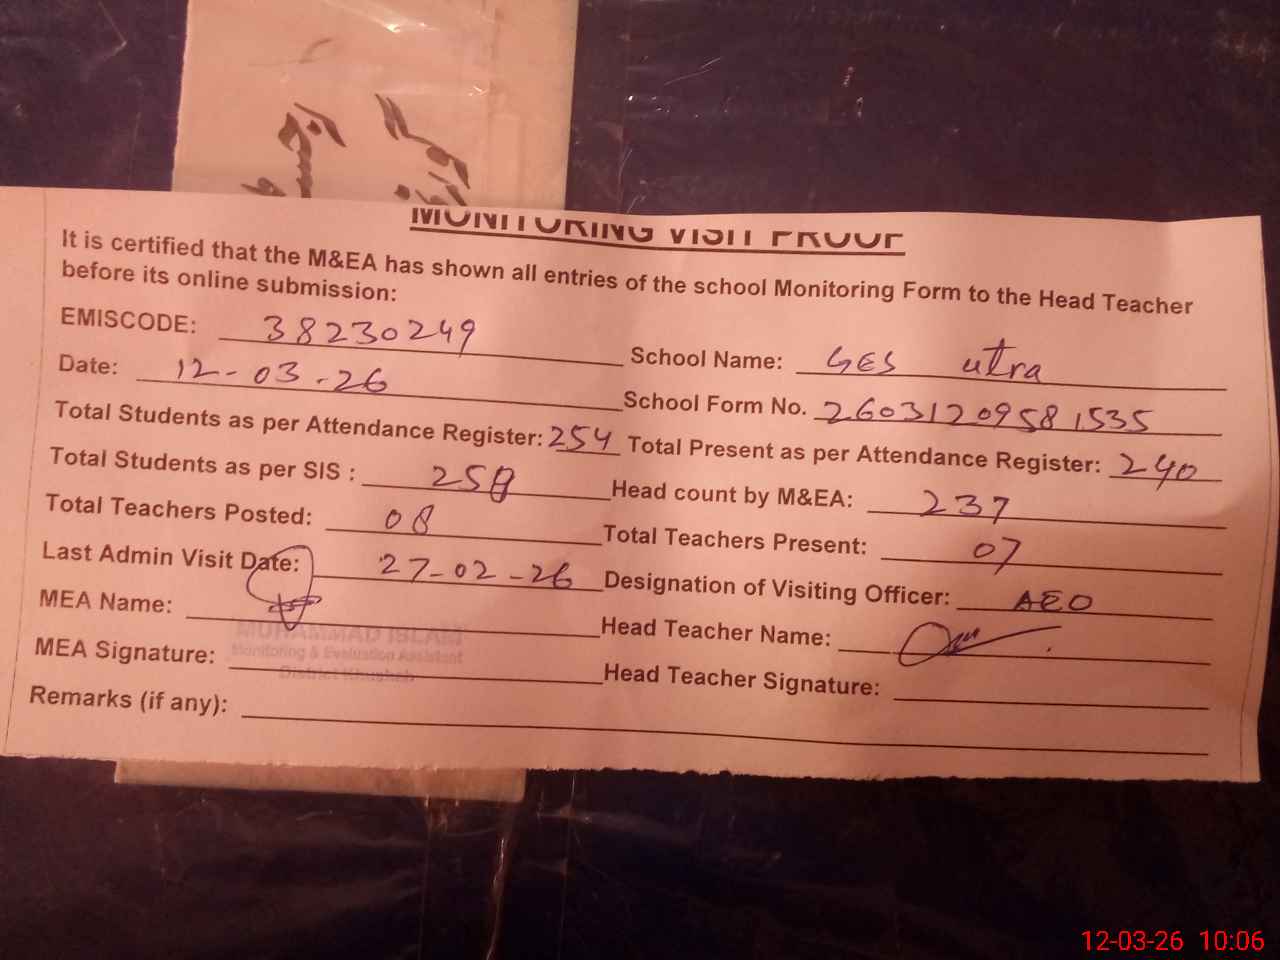 MONITORING VISIT PROOF
It is certified that the M&EA has shown all entries of the school Monitoring Form to the Head Teacher
before its online submission:
EMISCODE: 38230249 School Name: GES utra
Date: 12-03-26 School Form No. 26031209581535
Total Students as per Attendance Register: 254 Total Present as per Attendance Register: 240
Total Students as per SIS : 258 Head count by M&EA: 237
Total Teachers Posted: 08 Total Teachers Present: 07
Last Admin Visit Date: 27-02-26 Designation of Visiting Officer: AEO
MEA Name: Head Teacher Name:
MUHAMMAD ISLAM
Monitoring & Evaluation Assistant
District Khushab
MEA Signature: Head Teacher Signature:
Remarks (if any):
12-03-26 10:06